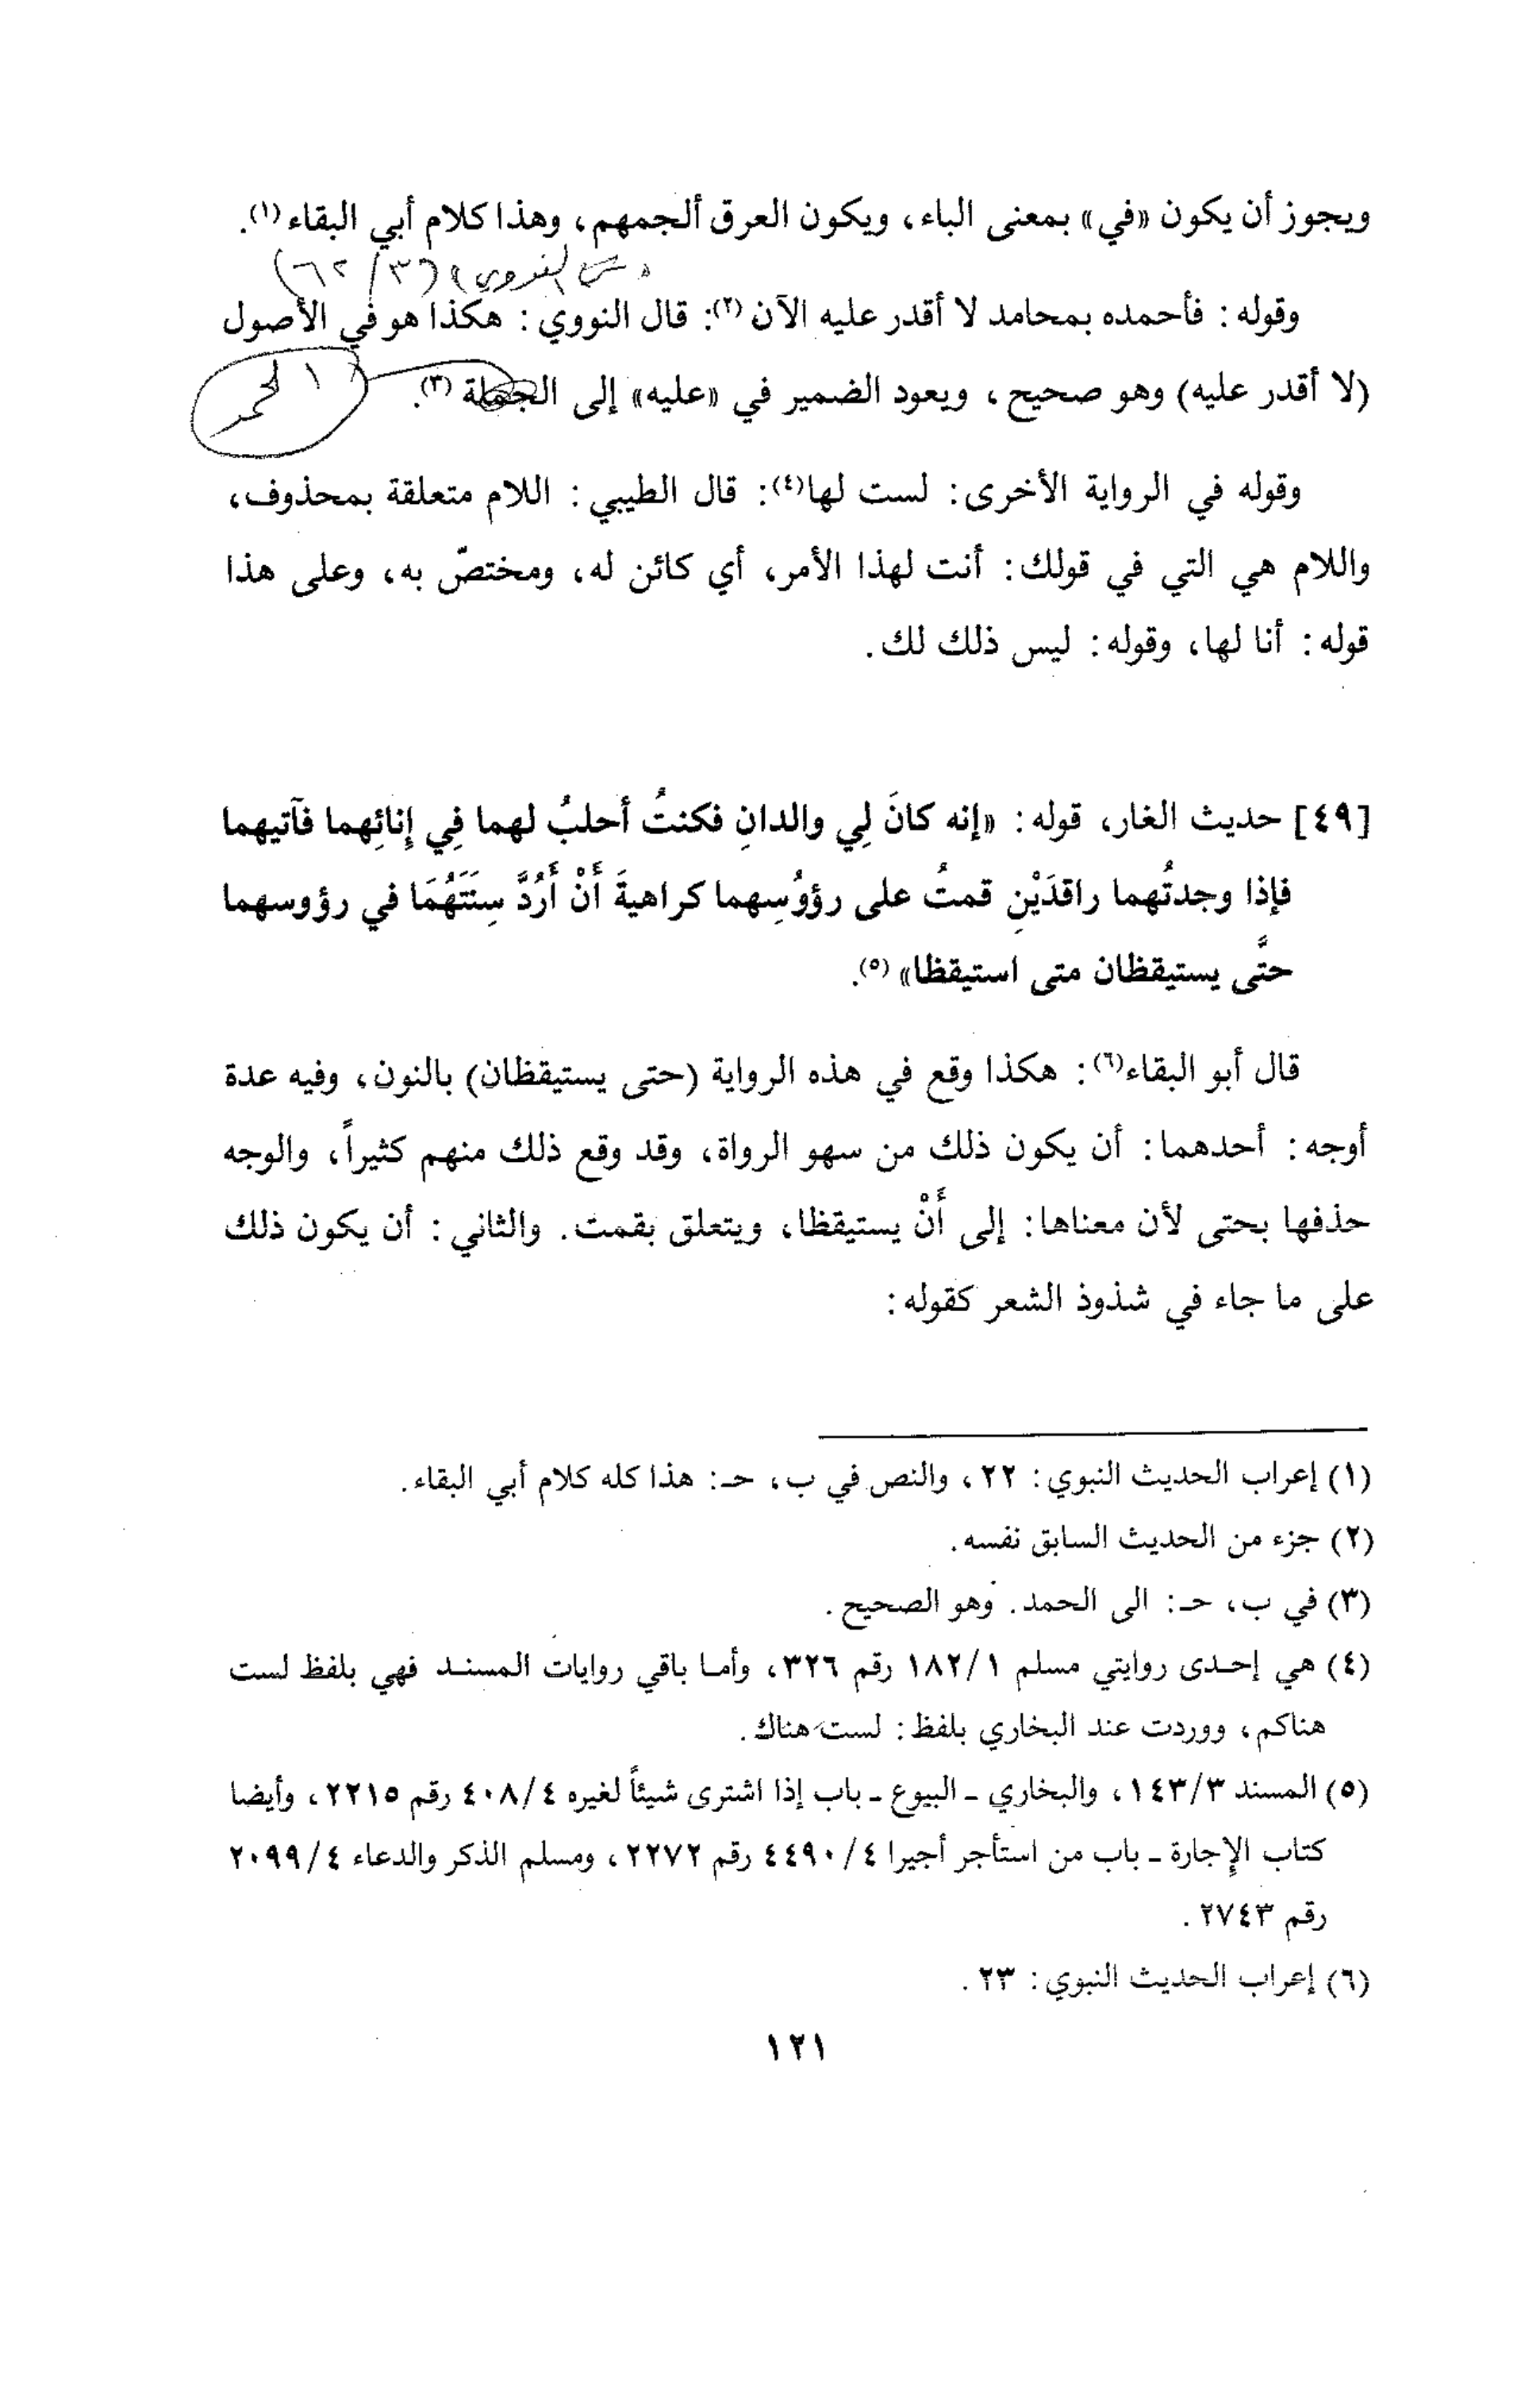 ويجوز أن يكون «في» بمعنى الباء، ويكون العرق ألجمهم، وهذا كلام أبي البقاء(١).
شرح النووي (٣/٦٢)
وقوله: فأحمده بمحامد لا أقدر عليه الآن(٢): قال النووي: هكذا هو في الأصول
(لا أقدر عليه) وهو صحيح، ويعود الضمير في «عليه» إلى الجملة(٣).
الحمد
وقوله في الرواية الأخرى: لست لها(٤): قال الطيبي: اللام متعلقة بمحذوف،
واللام هي التي في قولك: أنت لهذا الأمر، أي كائن له، ومختصّ به، وعلى هذا
قوله: أنا لها، وقوله: ليس ذلك لك.
[٤٩] حديث الغار، قوله: «إنه كانَ لِي والدانِ فكنتُ أحلبُ لهما فِي إِنائِهما فآتيهما
فإذا وجدتُهما راقدَيْنِ قمتُ على رؤوُسِهما كراهيةَ أَنْ أَرُدَّ سِنَتَهُمَا في رؤوسهما
حتَّى يستيقظان متى استيقظا»(٥).
قال أبو البقاء(٦): هكذا وقع في هذه الرواية (حتى يستيقظان) بالنون، وفيه عدة
أوجه: أحدهما: أن يكون ذلك من سهو الرواة، وقد وقع ذلك منهم كثيراً، والوجه
حذفها بحتى لأن معناها: إلى أَنْ يستيقظا، ويتعلق بقمت. والثاني: أن يكون ذلك
على ما جاء في شذوذ الشعر كقوله:
(١) إعراب الحديث النبوي: ٢٢، والنص في ب، حـ: هذا كله كلام أبي البقاء.
(٢) جزء من الحديث السابق نفسه.
(٣) في ب، حـ: الى الحمد. وهو الصحيح.
(٤) هي إحدى روايتي مسلم ١/١٨٢ رقم ٣٢٦، وأما باقي روايات المسند فهي بلفظ لست
هناكم، ووردت عند البخاري بلفظ: لست هناك.
(٥) المسند ٣/١٤٣، والبخاري ـ البيوع ـ باب إذا اشترى شيئاً لغيره ٤/٤٠٨ رقم ٢٢١٥، وأيضا
كتاب الإجارة ـ باب من استأجر أجيرا ٤/٤٤٩٠ رقم ٢٢٧٢، ومسلم الذكر والدعاء ٤/٢٠٩٩
رقم ٢٧٤٣.
(٦) إعراب الحديث النبوي: ٢٣.
١٢١